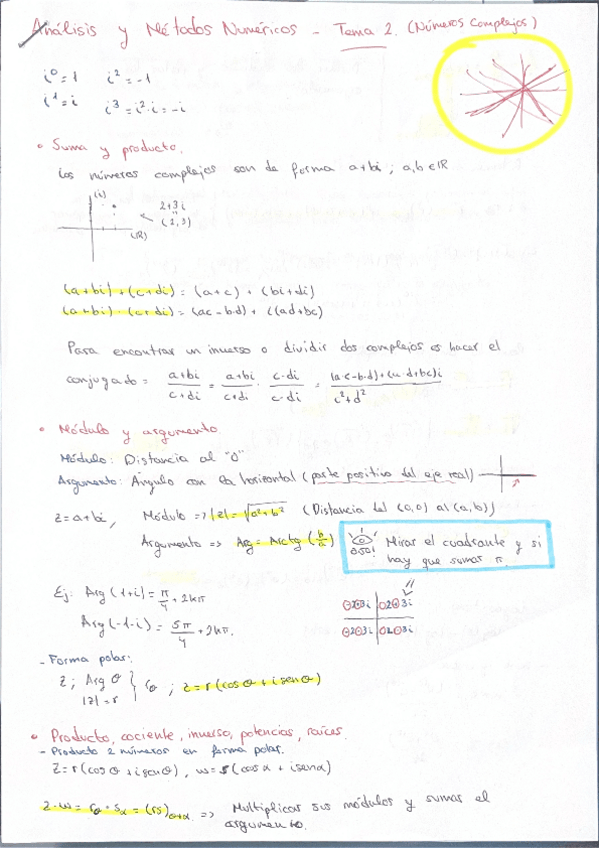 Análisis y Métodos Numéricos - Tema 2. (Números Complejos)
i⁰ = 1 i² = -1
i¹ = i i³ = i²·i = -i
• Suma y producto.
Los números complejos son de forma a+bi ; a,b ∈ ℝ
(i)
2+3i
(2,3)
(ℝ)
(a+bi)+(c+di) = (a+c) + (bi+di)
(a+bi)·(c+di) = (ac-b·d) + i(ad+bc)
Para encontrar un inverso o dividir dos complejos es hacer el
conjugado = a+bi / c+di = a+bi / c+di · c-di / c-di = (a·c-b·d)+(a·d+bc)i / c²+d²
• Módulo y argumento
Módulo: Distancia al "0"
Argumento: Ángulo con la horizontal (parte positiva del eje real)
z = a+bi, Módulo => |z| = √a²+b² (Distancia del (0,0) al (a,b))
Argumento => Arg = Arctg (b/a)
OJO! Mirar el cuadrante y si
hay que sumar π.
Ej: Arg (1+i) = π/4 + 2kπ
Arg (-1-i) = 5π/4 + 2kπ.
- Forma polar:
z ; Arg θ
|z| = r } r_θ ; z = r(cos θ + i sen θ)
• Producto, cociente, inverso, potencias, raíces.
- Producto 2 números en forma polar.
z = r(cos θ + i sen θ), w = s(cos α + i sen α)
z·w = r_θ · s_α = (rs)_θ+α => Multiplicar sus módulos y sumar el
argumento.